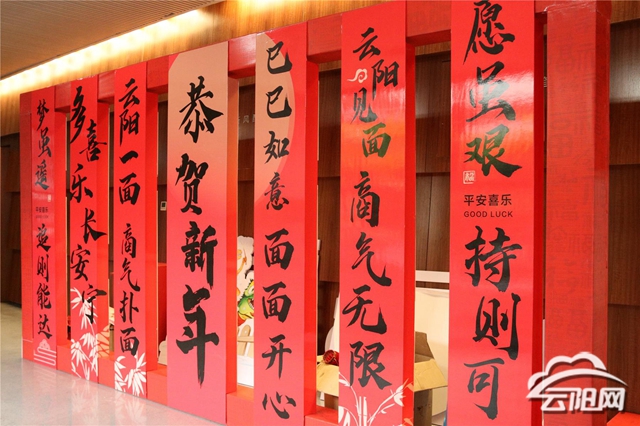 梦虽遥
平安喜乐
追则能达
多喜乐长安宁
云阳一面
商气扑面
恭贺新年
巳巳如意
面面开心
云阳见面
商气无限
愿虽艰
平安喜乐
GOOD LUCK
持则可
云阳网